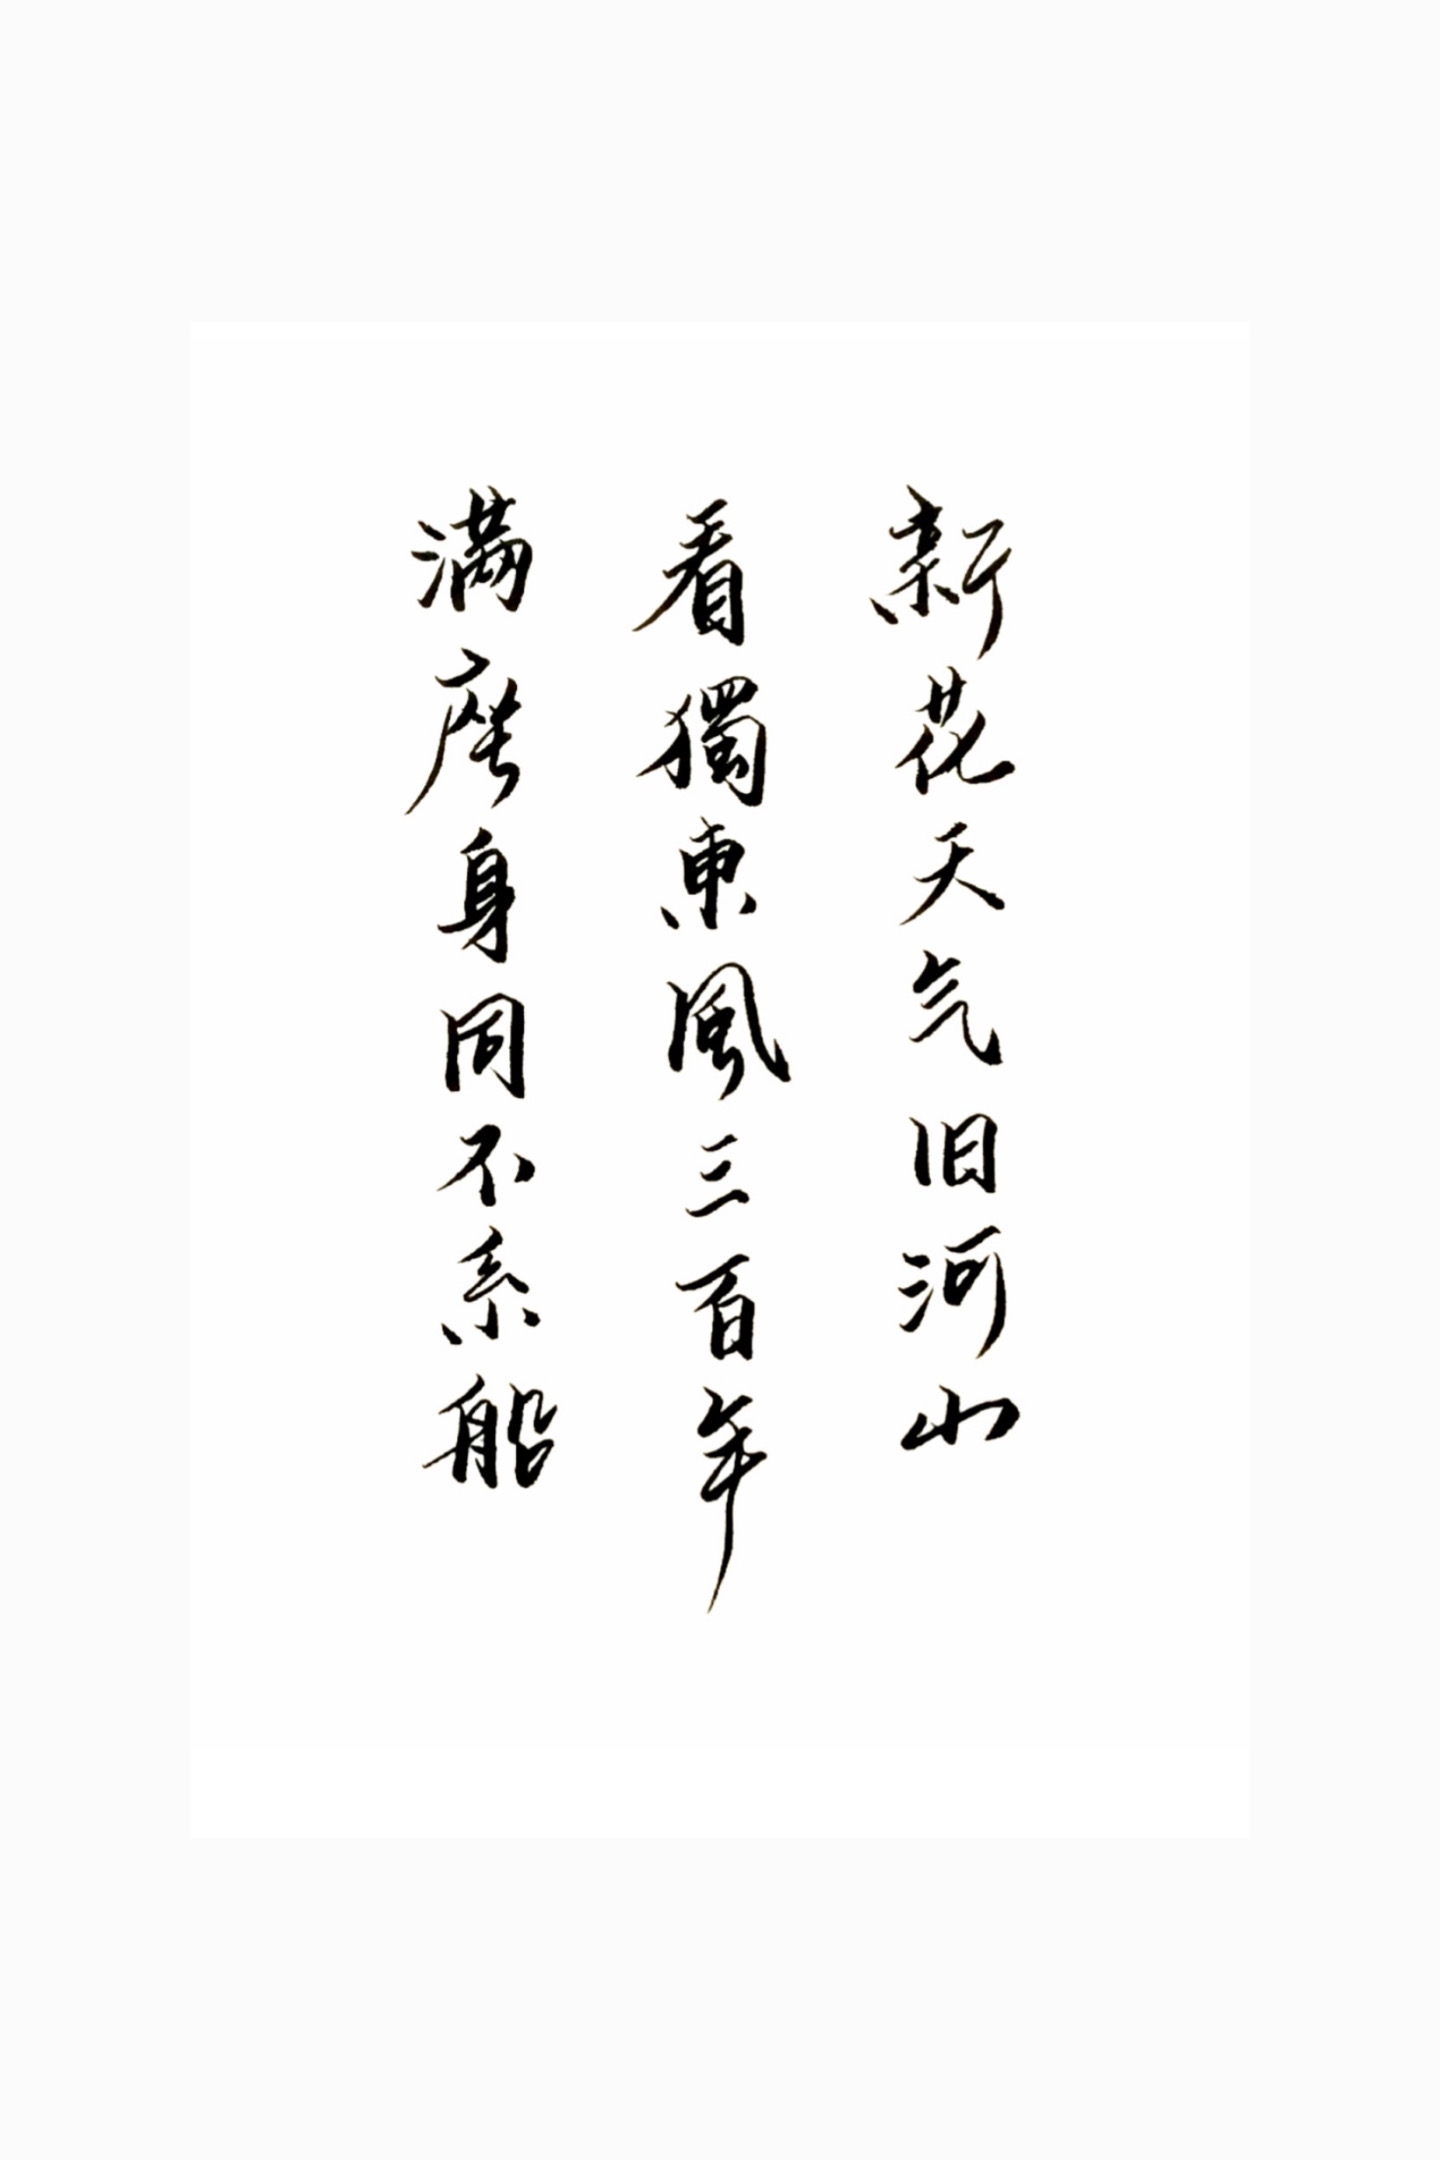 新花天气旧河山
看獨東風三百年
满座身同不系船